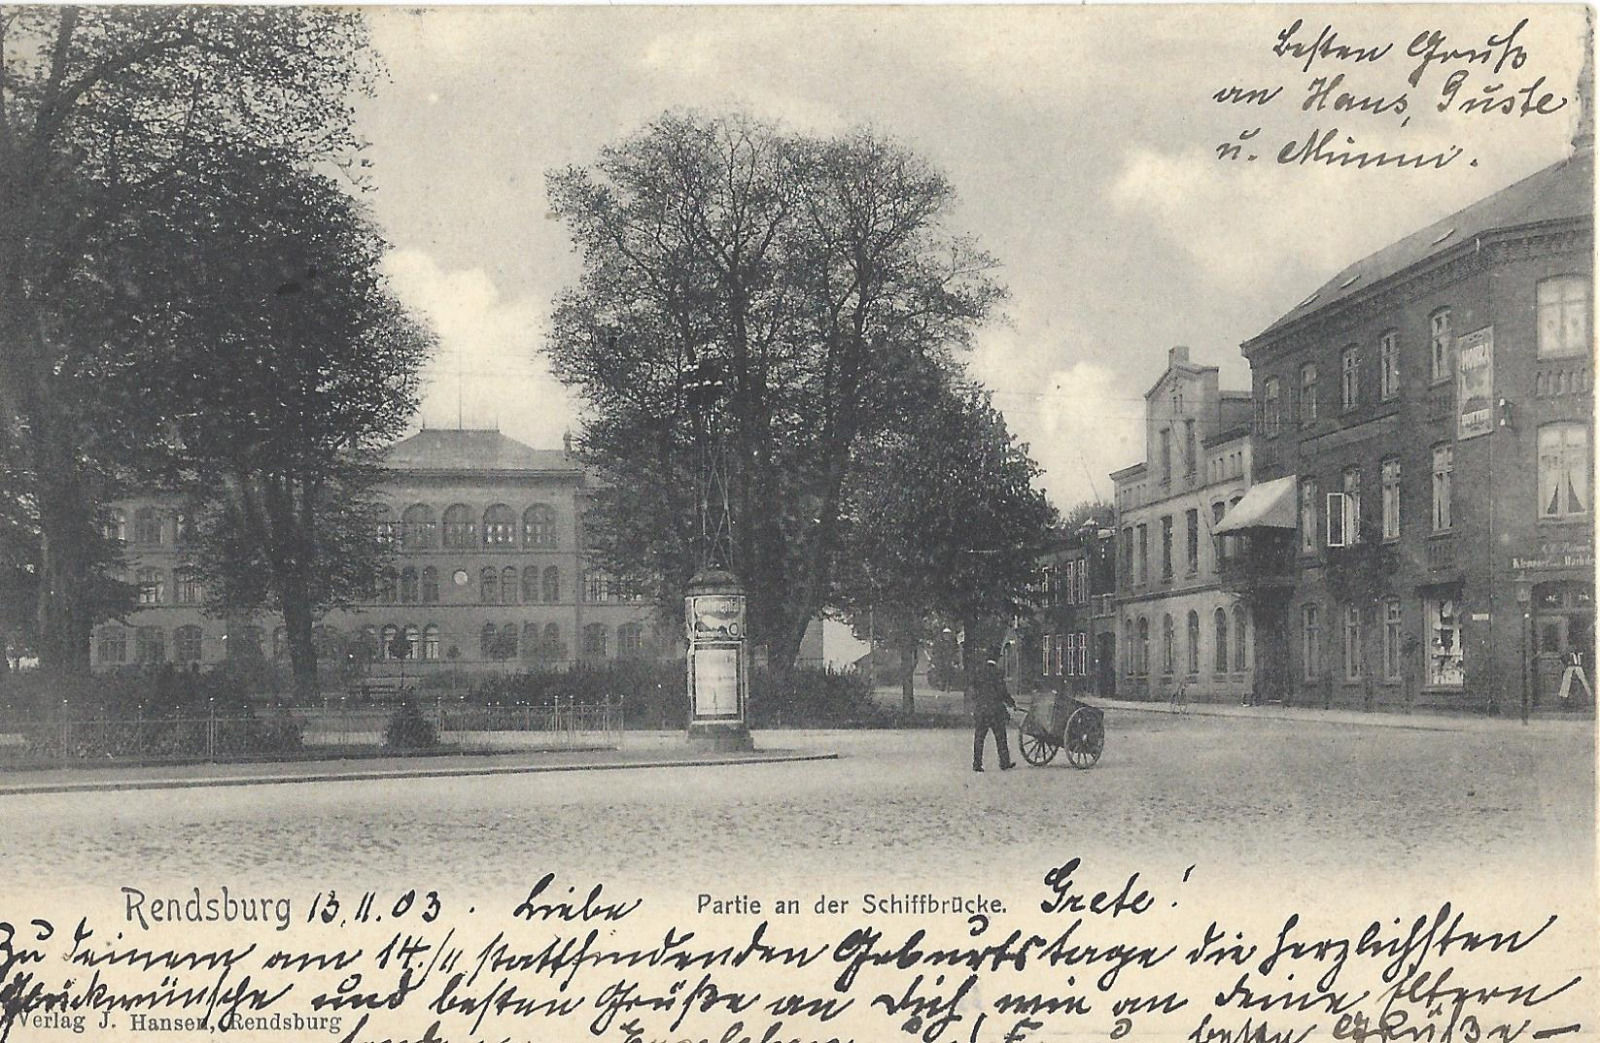 Besten Gruß
an Hans, Guste
u. Mimmi.
Rendsburg 13.11.03. Liebe Partie an der Schiffbrücke. Grete!
Zu Deinem am 14./11. stattfindenden Geburtstage die herzlichsten
Glückwünsche und besten Grüße an Dich, wie an Deine Eltern
Verlag J. Hansen, Rendsburg
beste Grüße